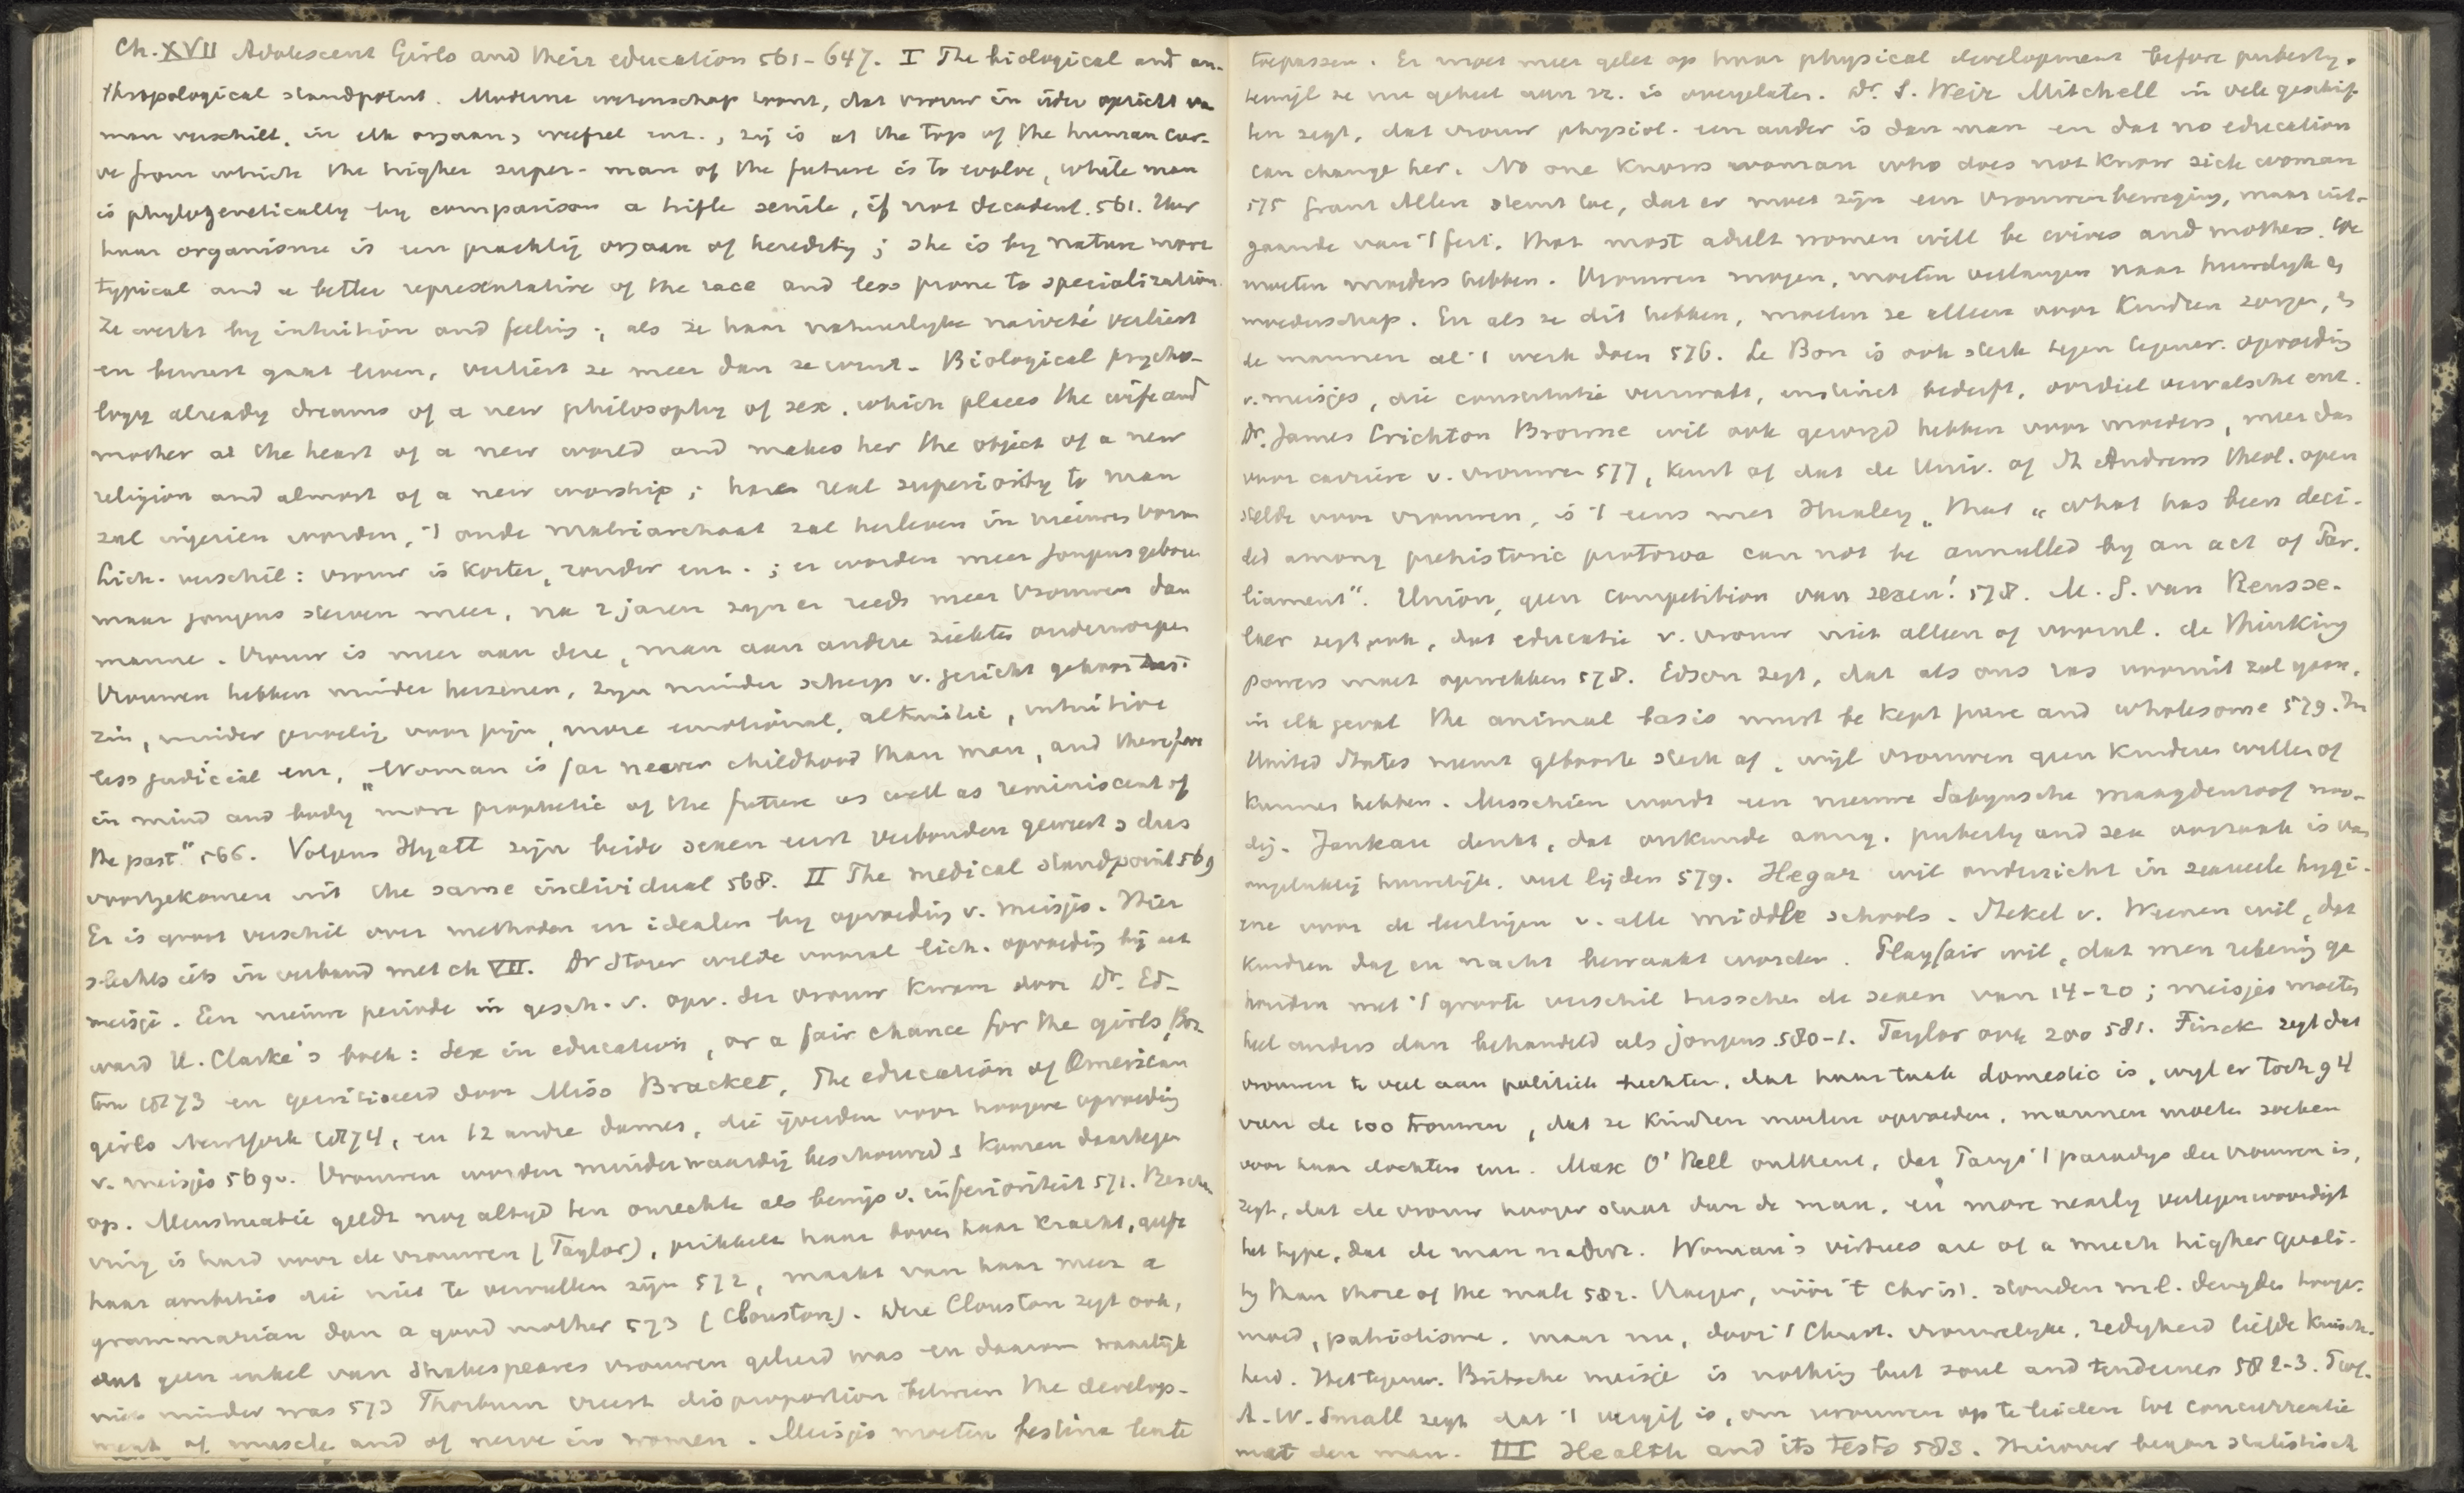 Ch. XVII Adolescent Girls and their education 561-647. I The biological and an-
thropological standpoint. Moderne wetenschap toont, dat vrouw in ieder opzicht van
man verschilt, in elk orgaan, weefsel enz., zij is at the top of the human cur-
ve from which the higher super-man of the future is to evolve, while man
is phylogenetically by comparison a trifle senile, if not decadent. 561.
haar organisme is een prachtig orgaan of heredity; she is by nature more
typical and a better representative of the race and less prone to specialization.
Ze werkt by intuition and feeling; als ze haar natuurlyke naïveté verliest
en bewust gaat leven, verliest ze meer dan ze wint. Biological psycho-
logy already dreams of a new philosophy of sex, which places the wife and
mother at the heart of a new world and makes her the object of a new
religion and almost of a new worship; haar real superiority to man
zal ingezien worden, 't oude matriarchaat zal herleven in nieuwen vorm
Lich. verschil: vrouw is korter, ronder enz.; er worden meer jongens geboren
maar jongens sterven meer, na 2 jaren zyn er reeds meer vrouwen dan
mannen. Vrouw is meer aan deze, man aan andere ziektes onderworpen
Vrouwen hebben minder hersenen, zyn minder scherp v. gezicht gehoor tast-
zin, minder gevoelig voor pijn, more emotional, altruistic, intuitive
less judicial enz. "Woman is far nearer childhood than man, and therefore
in mind and body more prophetic of the future as well as reminiscent of
the past" 566. Volgens Hyatt zijn beide sexen eerst verbonden geweest, dus
voortgekomen uit the same individual 568. II The medical standpoint 569
Er is groot verschil over methoden en idealen by opvoeding v. meisjes. Hier
slechts iets in verband met ch VII. Dr Storer wilde vooral lich. opvoeding bij het
meisje. Een nieuwe periode in gesch. v. opv. der vrouw kwam door Dr. Ed-
ward H. Clarke's boek: Sex in education, or a fair chance for the girls, Bos-
ton 1873 en gecriticeerd door Miss Bracket, The education of American
girls New York 1874, en 12 andre dames, die ijverden voor hoogere opvoeding
v. meisjes 569v. Vrouwen worden minderwaardig beschouwd & komen daartegen
op. Menstruatie geldt nog altyd ten onrechte als bewijs v. inferioriteit 571. Bescha-
ving is hard voor de vrouwen (Taylor), prikkelt haar boven haar kracht, geeft
haar ambities die niet te vervullen zijn 572, maakt van haar meer a
grammarian dan a good mother 573 (Clouston). Deze Clouston zegt ook,
dat geen enkel van Shakespeares vrouwen geleerd was en daarom waarlijk
niet minder was 573 Thorburn vreest disproportion between the develop-
ment of muscle and of nerve in women. Meisjes moeten festina lente
toepassen. Er moet meer gelet op haar physical development before puberty,
terwijl ze nu geheel aan zz. is overgelaten. Dr. S. Weir Mitchell in vele geschrif-
ten zegt, dat vrouw physiol. een ander is dan man en dat no education
can change her. No one knows woman who does not know sick woman
575 Grant Allen stemt toe, dat er moet zijn een vrouwenbeweging, maar uit-
gaande van 't feit, that most adult women will be wives and mothers. We
moeten moeders hebben. Vrouwen mogen, moeten verlangen naar huwelyk &
moederschap. En als ze dit hebben, moeten ze alleen voor kindren zorgen, &
de mannen al 't werk doen 576. Le Bon is ook sterk tegen tegenw. opvoeding
v. meisjes, die constitutie verzwakt, instinct bederft, oordeel vervalscht enz.
Dr. James Crichton Browne wil ook gezorgd hebben voor moeders, meer dan
voor carrière v. vrouwen 577, keurt af dat de Univ. of St Andrews theol. open
stelde voor vrouwen, is 't eens met Huxley, that "what has been deci-
ded among prehistoric protozoa can not be annulled by an act of Par-
liament". Union, geen competition van sexen! 578. M. G. van Rensse-
laer zegt ook, dat educatie v. vrouw niet alleen of voorul. de thinking
powers moet opwekken 578. Edson zegt, dat als ons ras vooruit zal gaan,
in elk geval the animal basis must be kept pure and wholesome 579. In
United States neemt geboorte sterk af, wijl vrouwen geen kinderen willen of
kunnen hebben. Misschien wordt een nieuwe Sabynsche maagdenroof noo-
dig. Jankau denkt, dat onkunde aang. puberty and sex oorzaak is van
ongelukkig huwelijk, veel lijden 579. Hegar wil onderricht in sexueele hygi-
ene voor de leerlingen v. alle middle schools. Stekel v. Weenen wil, dat
kindren dag en nacht bewaakt worden. Playfair wil, dat men rekening ge
houden met 't groote verschil tusschen de sexen van 14-20; meisjes moeten
heel anders dan behandeld als jongens 580-1. Taylor ook zoo 581. Finck zegt dat
vrouwen te veel aan politiek hechten, dat haar taak domestic is, wyl er toch 94
van de 100 trouwen, dat ze kindren moeten opvoeden, mannen moeten zoeken
voor haar dochters enz. Max O'Rell ontkent, dat Parys 't paradys der vrouwen is,
zegt, dat de vrouw hooger staat dan de man, en "more nearly vertegenwoordigt
het type, dat de man nadert. Woman's virtues are of a much higher quali-
ty than those of the male 582. Vroeger, vóór 't Christ. stonden ml. deugden hooger,
moed, patriotisme, maar nu, door 't Christ. vrouwelyke, zedigheid liefde kuisch-
heid. Het tegenw. Britsche meisje is nothing but soul and tenderness 582-3.
A. W. Small zegt dat 't vergif is, om vrouwen op te leiden tot concurrentie
met den man. III Health and its tests 583. Hierover began statistisch